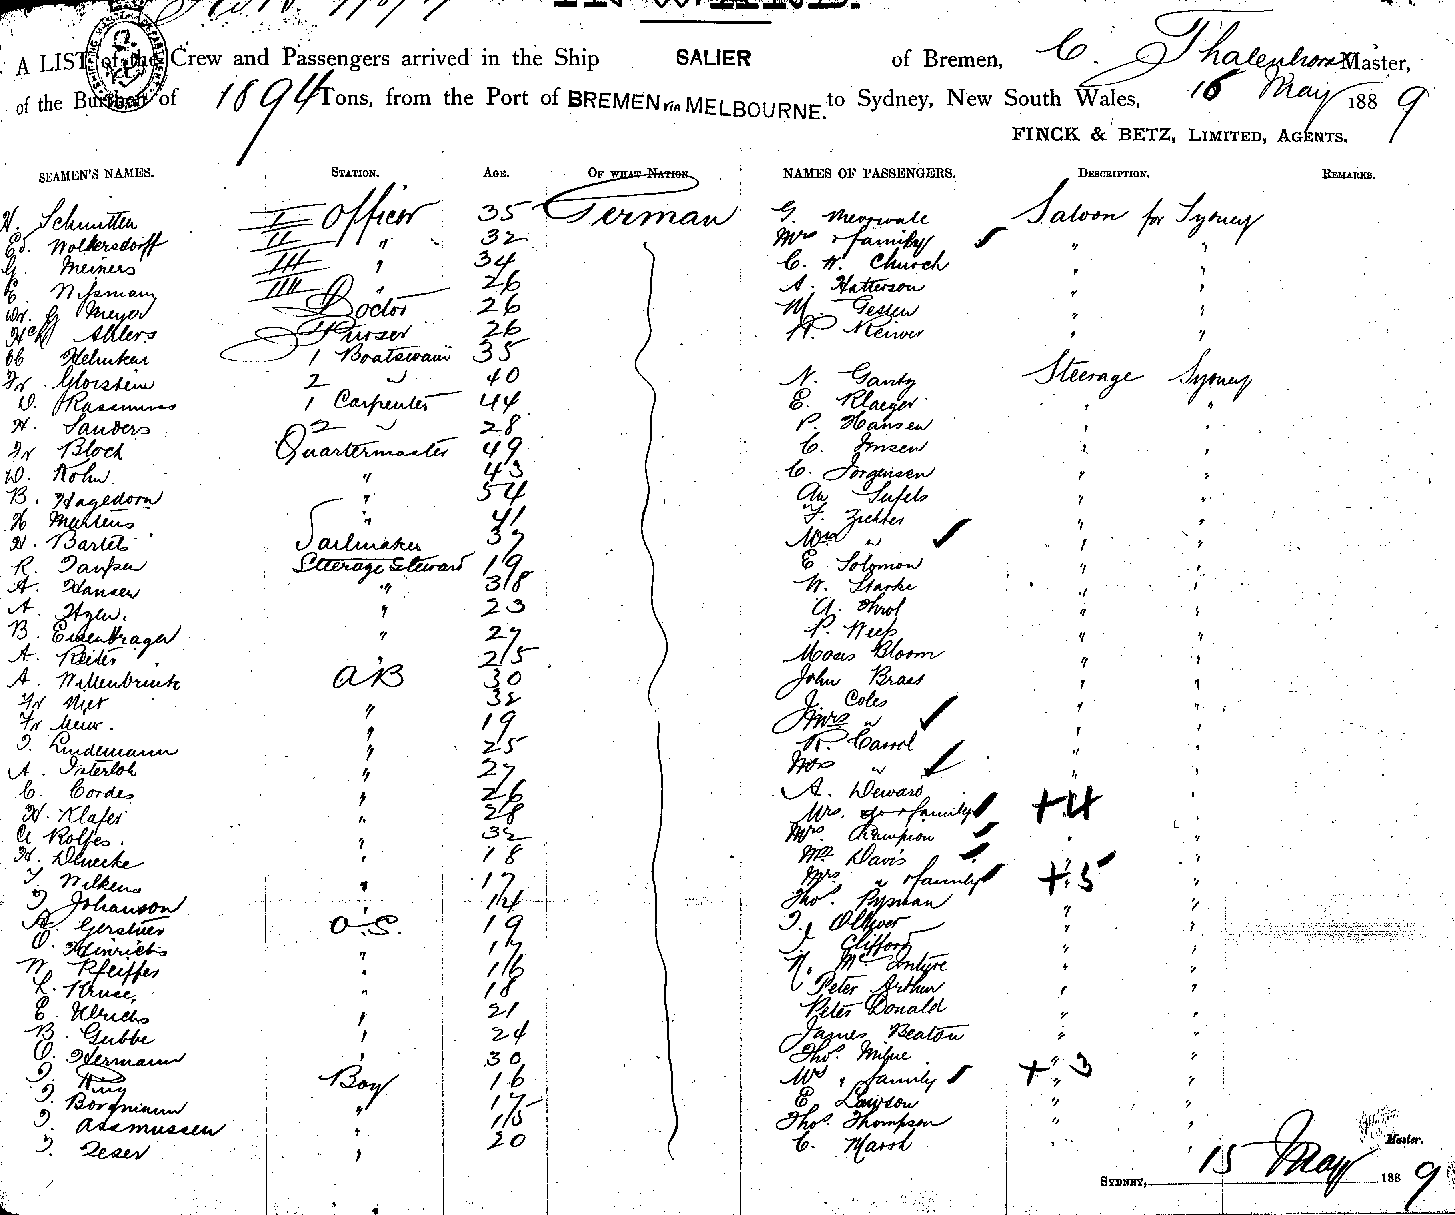 INWARD.
A LIST of the Crew and Passengers arrived in the Ship SALIER of Bremen, C. Thalenhorst Master,
of the Burthen of 1894 Tons, from the Port of BREMEN via MELBOURNE. to Sydney, New South Wales, 16 May 1889
FINCK & BETZ, LIMITED, AGENTS.
SEAMEN'S NAMES. STATION. AGE. OF WHAT NATION. NAMES OF PASSENGERS. DESCRIPTION. REMARKS.
H. Schmitten I Officer 35 German G. Merewale Saloon for Sydney
Ed. Wolkersdorff II " 32 Mrs & family " "
G. Meiners III " 34 C. H. Church " "
E. IIII " 26 A. Hatterson " "
Dr. G Meyer Doctor 26 " "
Ahlers Purser 26 " "
Helmken 1 Boatswain 35
Fr Glorstein 2 " 40 N. Gantz Steerage Sydney
D. Rasmuss 1 Carpenter 44 E. Klaeger " "
H. Sanders 2 " 28 P. Hansen " "
Fr Bloch Quartermaster 49 C. Jensen " "
D. Kohn. " 43 C. Jorgensen " "
B. Hagedorn " 54 " "
H Martens " 41 " "
H. Bartels Sailmaker 37 Mrs " " "
R. Steerage Steward 19 E. Solomon " "
A. Hansen " 38 W. Starke " "
A. " 23 " "
B. Eisentrager " 27 P. " "
A. Reiter " 25 Moses Bloom " "
A. Willenbrink AB 30 John Brass " "
Fr " 32 J. Coles " "
Fr " 19 Mrs " " "
J. Lindemann " 25 R. Carrol " "
A. " 27 Mrs " " "
C. Cordes " 26 A. Deward
H. Klafer " 28 Mrs. do & family +4 "
Rolfes. " 32 Mrs. Champion " "
H. " 18 Davis " "
J. Wilkens " 17 Mrs " & family +5 "
J. Johanson " 14 Thos. Pysman " "
A. Gerstner O.S. 19 J. Olliver " "
O. Hinrichs " 17 J. Clifford " "
W. Pfeiffer " 16 N. McIntyre " "
L. Kruse, " 18 Peter Arthur " "
E. Ulrichs " 21 Peter Donald " "
B. Gubbe " 24 James Beaton " "
O. Hermann " 30 Thos. Milne " "
J. King Boy 16 Mrs " family +3 "
J. Borgmann " 17 E. Lawson " "
J. Assmussen " 15 Thos. Thompson " "
J. Zeser " 20 C. Marsh " "
Master.
SYDNEY, 15 May 1889